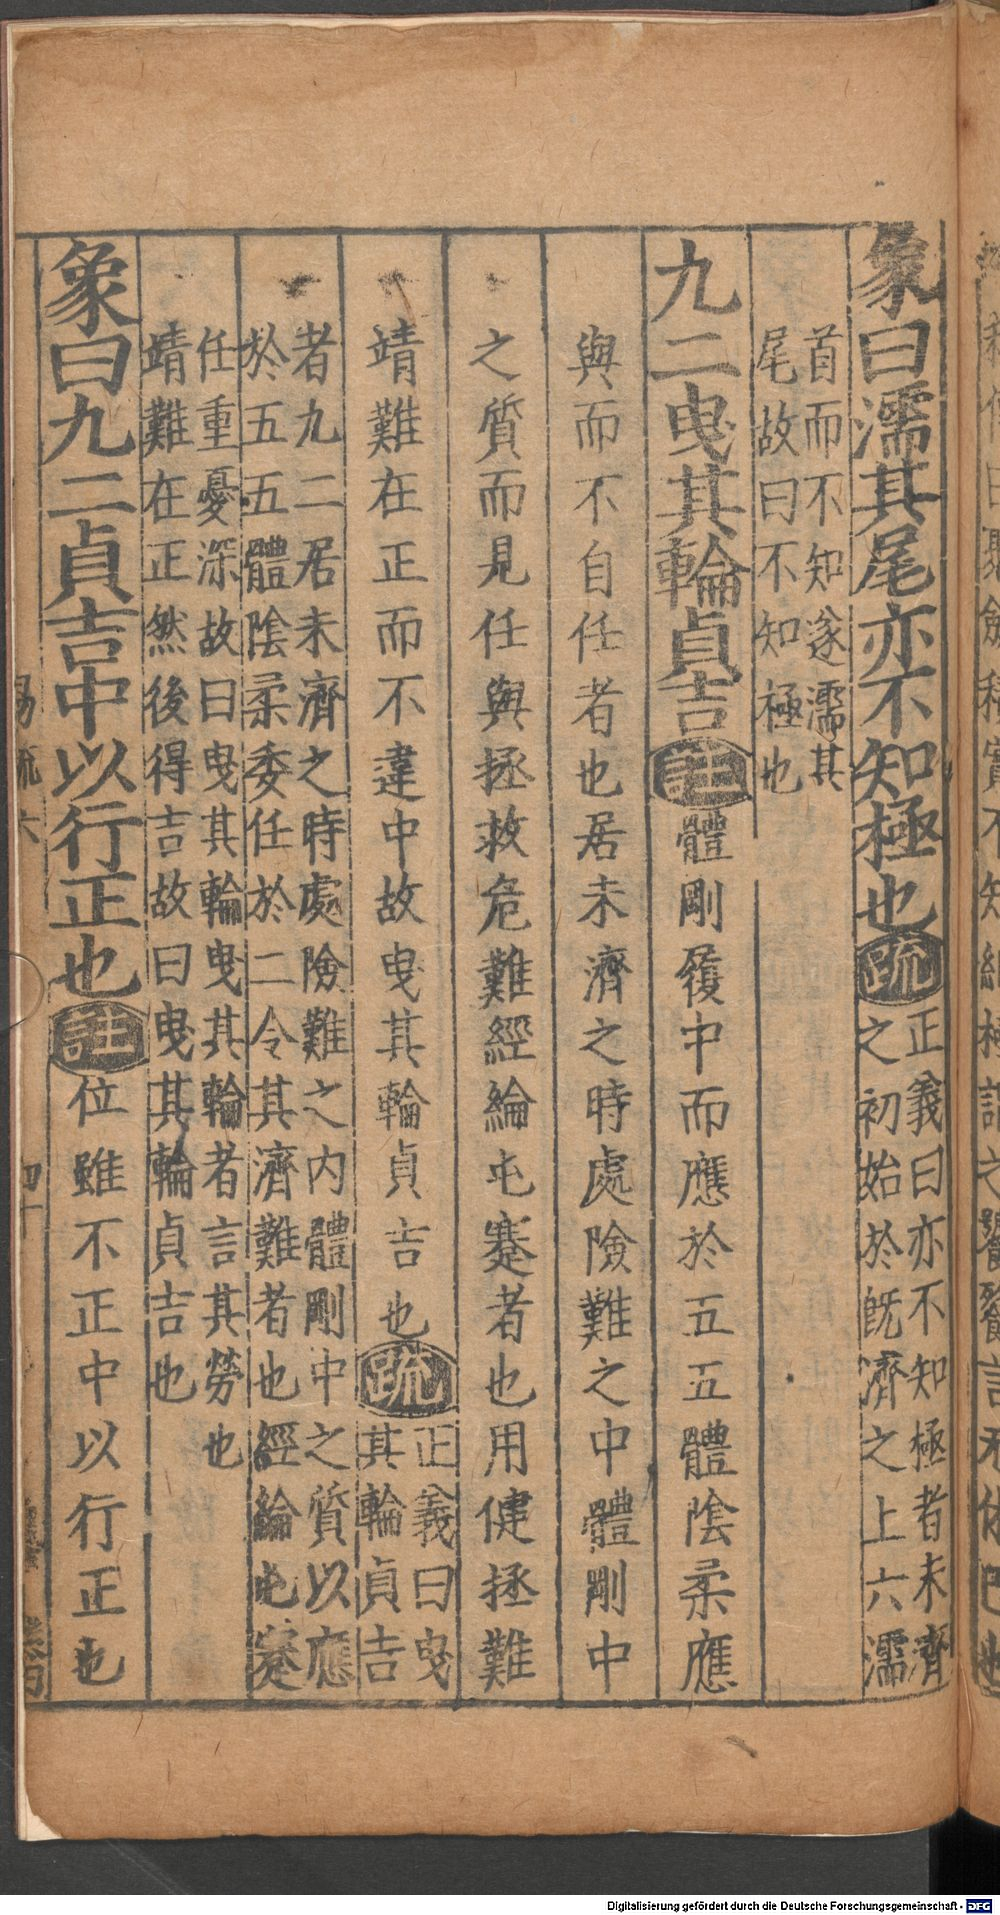 象曰濡其尾亦不知極也疏正義曰亦不知極者未濟
之初始於旣濟之上六濡
首而不知遂濡其
尾故曰不知極也
九二曳其輪貞吉註體剛履中而應於五五體陰柔應
與而不自任者也居未濟之時處險難之中體剛中
之質而見任與拯救危難經綸屯蹇者也用健拯難
靖難在正而不違中故曳其輪貞吉也疏正義曰曳
其輪貞吉
者九二居未濟之時處險難之内體剛中之質以應
於五五體陰柔委任於二令其濟難者也經綸屯蹇
任重憂深故曰曳其輪曳其輪者言其勞也
靖難在正然後得吉故曰曳其輪貞吉也
象曰九二貞吉中以行正也註位雖不正中以行正也
易疏六
四十
Digitalisierung gefördert durch die Deutsche Forschungsgemeinschaft - DFG